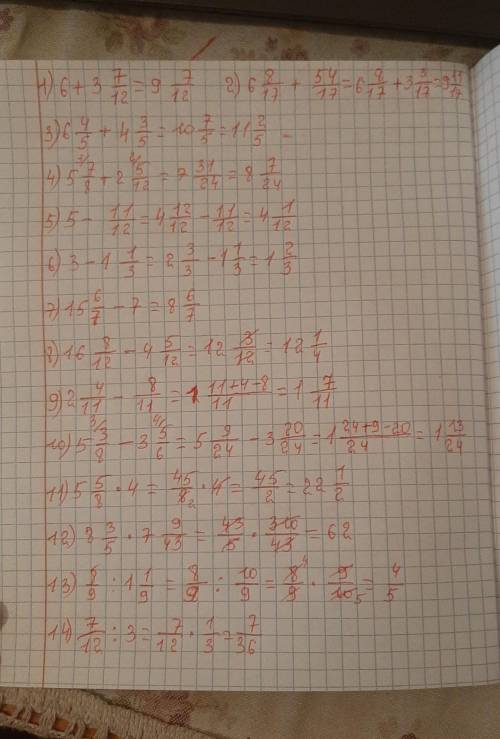 1) 6 + 3 7/12 = 9 7/12   2) 6 8/17 + 54/17 = 6 8/17 + 3 3/17 = 9 11/17
3) 6 4/5 + 4 3/5 = 10 7/5 = 11 2/5
4) 5 3/ 7/8 + 2 2/ 5/12 = 7 31/24 = 8 7/24
5) 5 - 11/12 = 4 12/12 - 11/12 = 4 1/12
6) 3 - 1 1/3 = 2 3/3 - 1 1/3 = 1 2/3
7) 15 6/7 - 7 = 8 6/7
8) 16 8/12 - 4 5/12 = 12 3/12 = 12 1/4
9) 2 4/11 - 8/11 = 1 11+4-8/11 = 1 7/11
10) 5 3/ 3/8 - 3 4/ 5/6 = 5 9/24 - 3 20/24 = 1 24+9-20/24 = 1 13/24
11) 5 5/8 · 4 = 45/8 2 · 4 = 45/2 = 22 1/2
12) 8 3/5 · 7 9/43 = 43/5 · 310/43 = 62
13) 8/9 : 1 1/9 = 8/9 : 10/9 = 8 4/9 · 9/10 5 = 4/5
14) 7/12 : 3 = 7/12 · 1/3 = 7/36